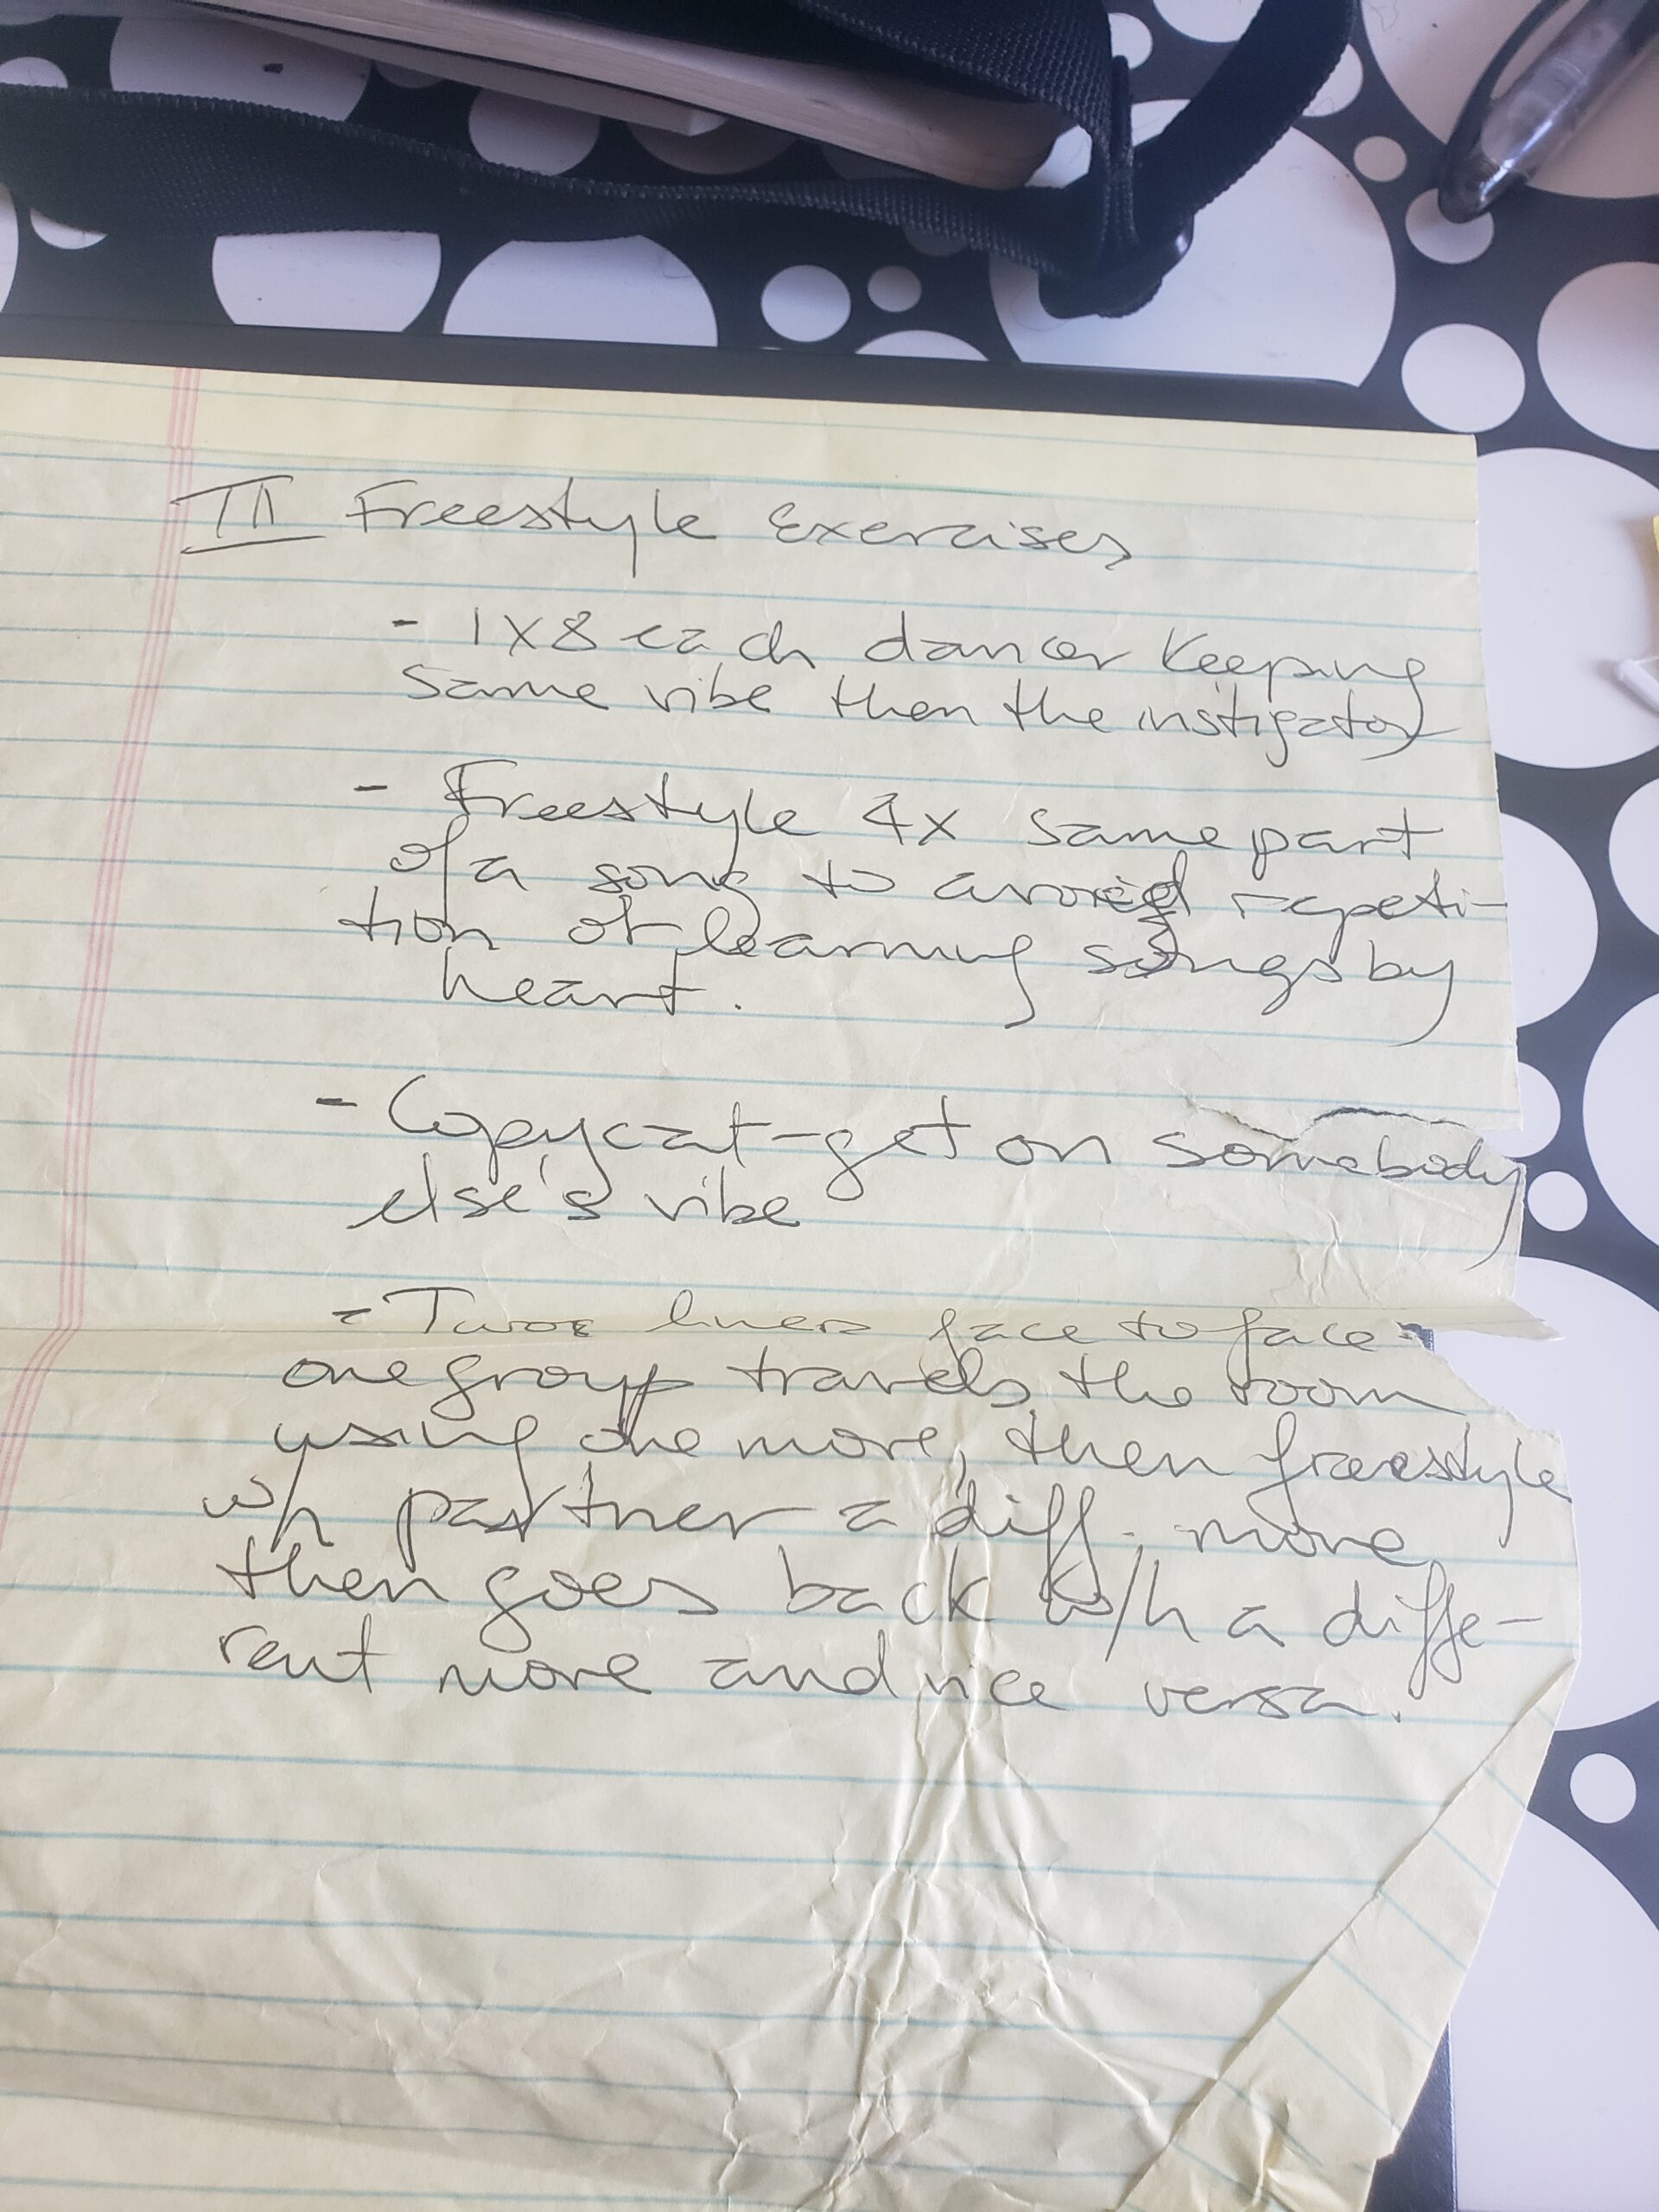 III Freestyle Exercises
- 1x8 each dancer Keeping
same vibe then the instigator
- Freestyle 4x same part
of a song to avoid repeti-
tion of learning songs by
heart.
- Copycat-get on somebody
else's vibe
- Two lines face to face
one group travels the room
using one move, then freestyle
w/h partner a diff. move
then goes back w/h a diffe-
rent move and vice versa.